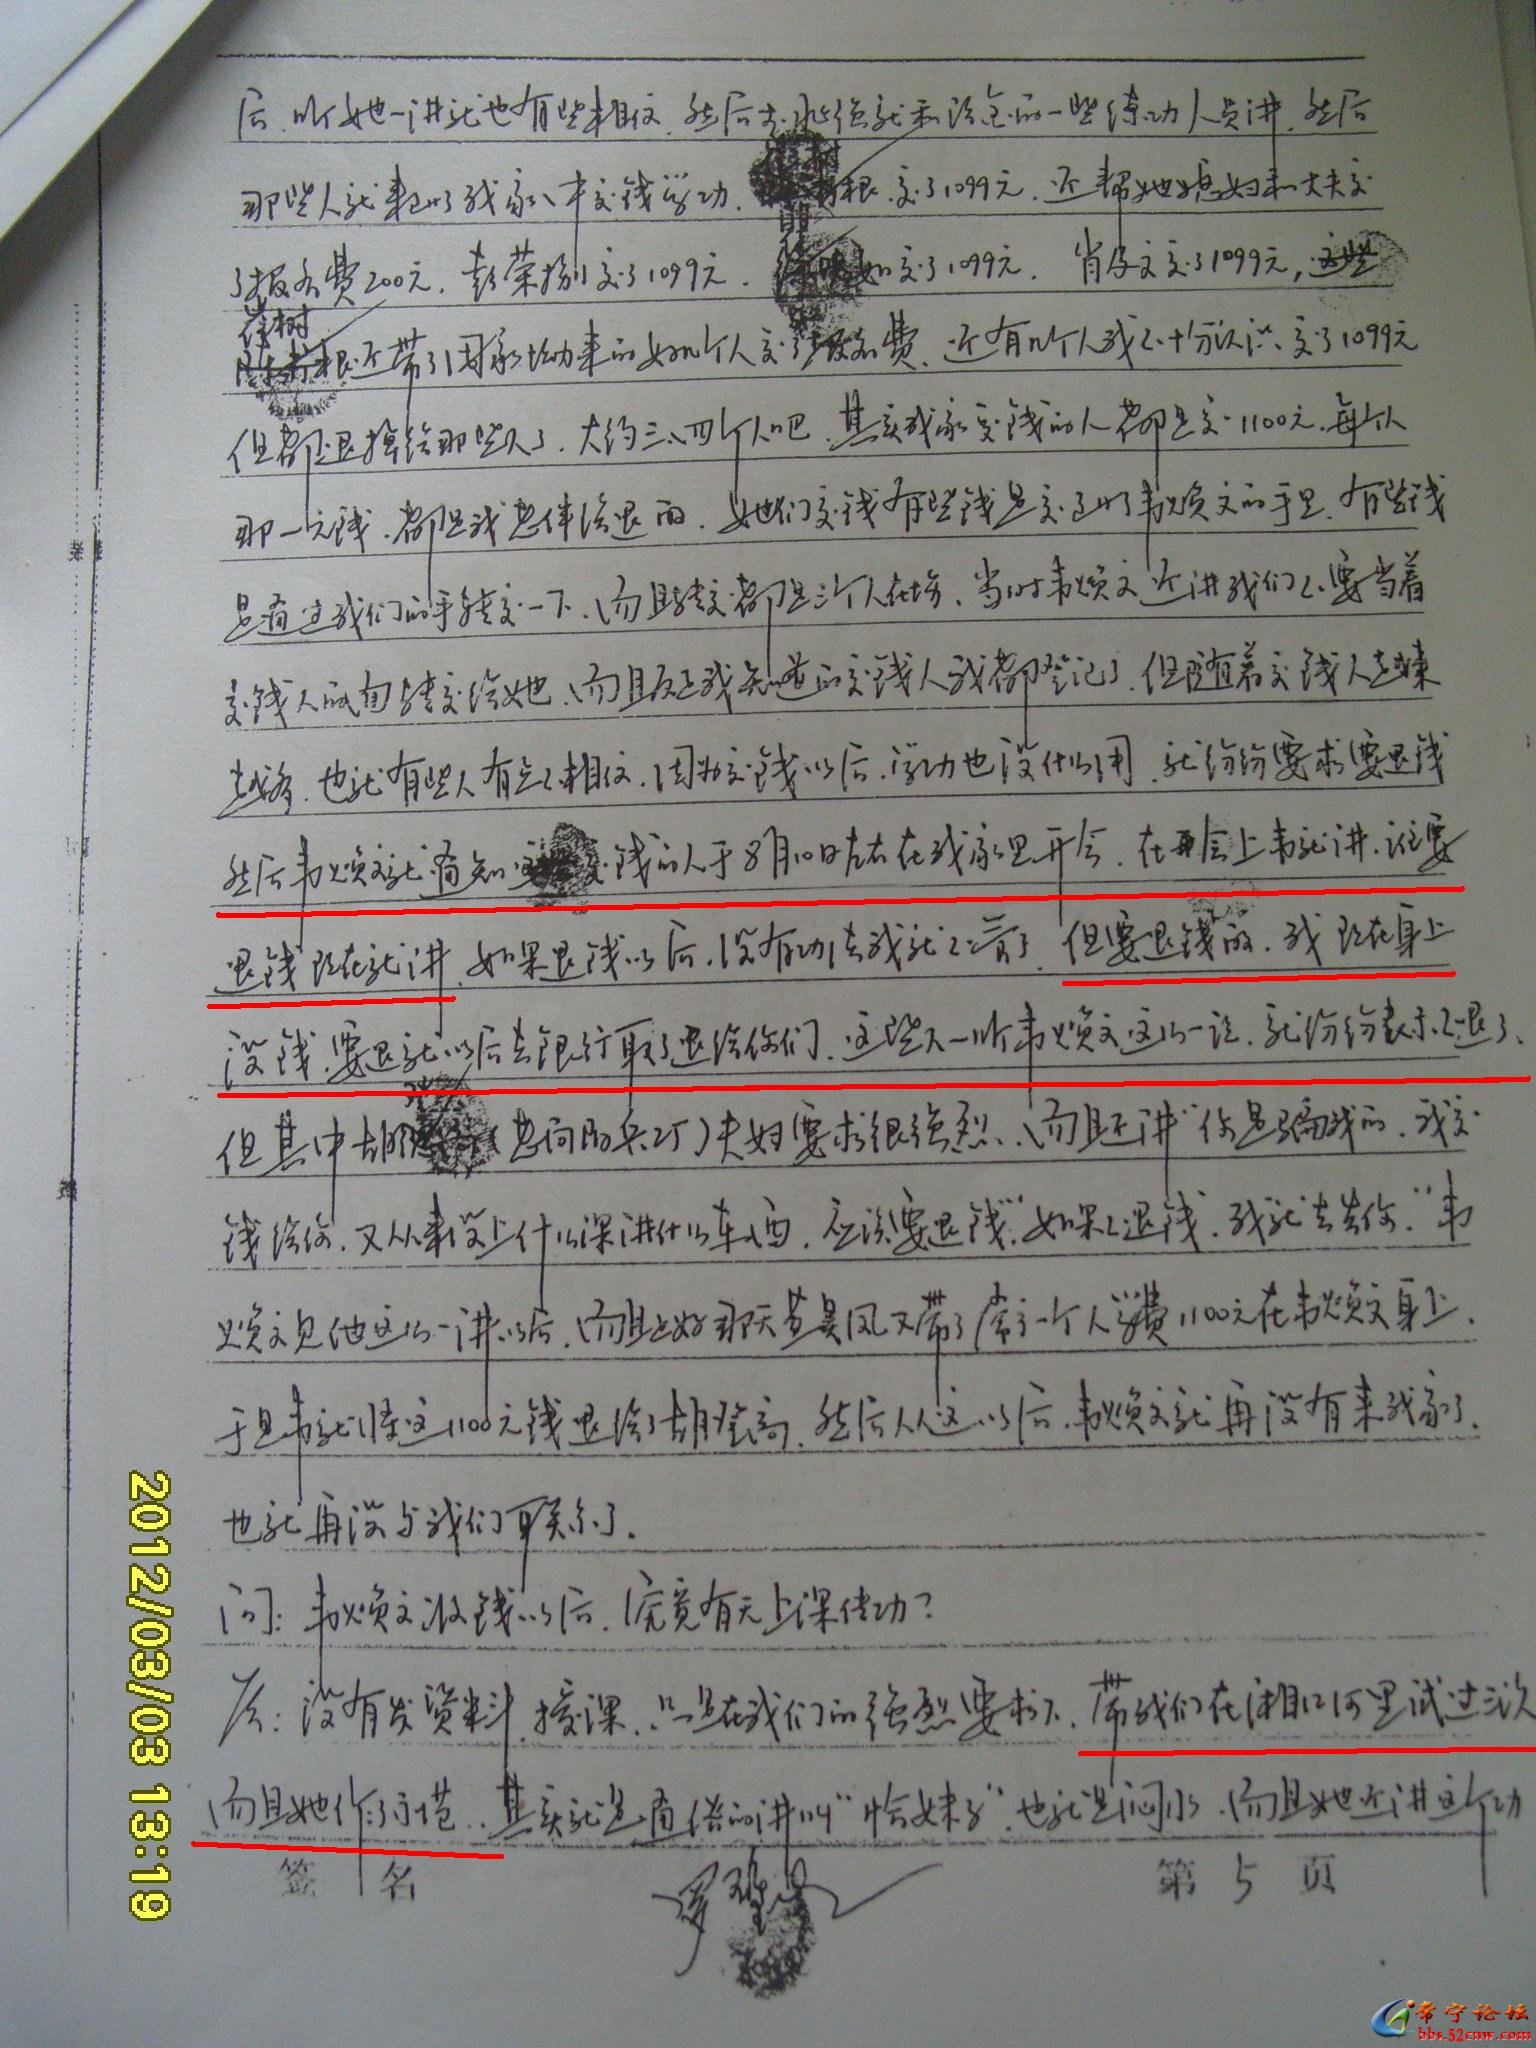 后,听她一讲就也有些相信,然后就和一些练功人员讲,然后
那些人就来到了我家中交钱学功,根交了1099元,还帮她媳妇和丈夫交
了报名费200元,彭荣交了1099元,如交了1099元,肖文交了1099元,这些
树
根还带了周家来的好几个人交了报名费,还有几个人我不十分认识,交了1099元
但都退掉给那些人了,大约三、四个人吧,其实我家交钱的人都是交1100元,每个人
那一元钱,都是我老伴给退的,她们交钱有些钱是交到了韦焕文的手里,有些钱
是通过我们的手转交一下,而且转交都是三个人在场,当时韦焕文还讲我们不要当着
交钱人的面转交给她,而且反正我知道的交钱人我都登记了,但随着交钱人越来
越多,也就有些人有点不相信,因为交钱以后,学功也没什么用,就纷纷要求要退钱
然后韦焕文就通知交钱的人于8月10日左右在我家里开会,在开会上韦就讲,谁要
退钱现在就讲,如果退钱以后,没有功法我就不管了,但要退钱的,我现在身上
没钱,要退就以后去银行取了退给你们,这些人一听韦焕文这么一说,就纷纷表示不退了,
但其中胡夫妇要求很强烈,而且还讲“你是骗我的,我交
钱给你,又从来没上什么课讲什么东西,应该要退钱”,如果不退钱,我就去告你,”韦
焕文见他这么一讲以后,而且正好那天凤又带了一个人学费1100元在韦焕文身上,
于是韦就将这1100元钱退给了胡登高,然后从这以后,韦焕文就再没有来我家了,
也就再没与我们联系了。
问:韦焕文收钱以后,究竟有无上课传功?
答:没有发资料,授课,只是在我们的强烈要求下,带我们在湘江河里试过三次
而且她作了示范,其实就是通俗的讲叫“妹子”,也就是闷水,而且她还讲这个功
签 名
第 5 页
2012/03/03 13:19
常宁论坛
bbs.52cnw.com